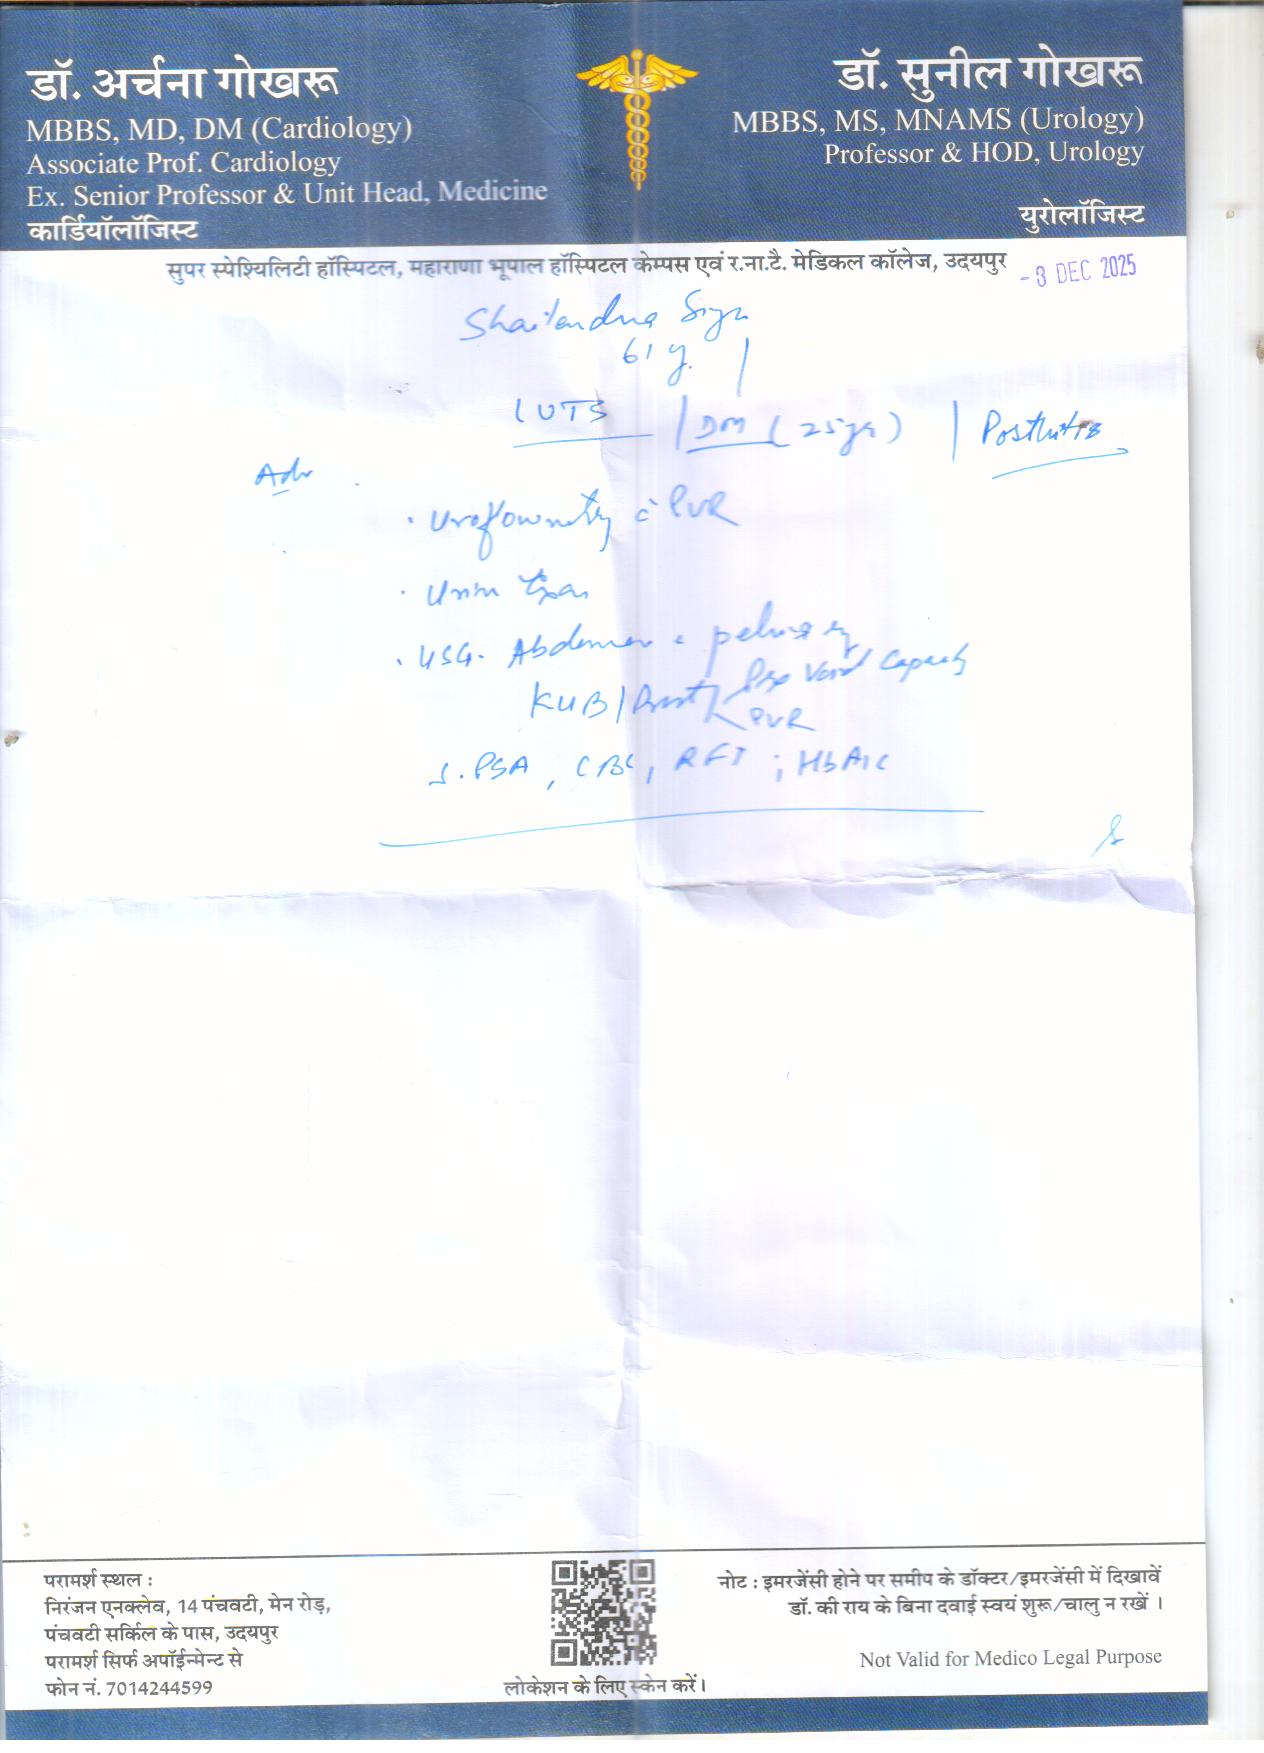 डॉ. अर्चना गोखरू
MBBS, MD, DM (Cardiology)
Associate Prof. Cardiology
Ex. Senior Professor & Unit Head, Medicine
कार्डियॉलॉजिस्ट
डॉ. सुनील गोखरू
MBBS, MS, MNAMS (Urology)
Professor & HOD, Urology
युरोलॉजिस्ट
सुपर स्पेश्यिलिटी हॉस्पिटल, महाराणा भूपाल हॉस्पिटल केम्पस एवं र.ना.टै. मेडिकल कॉलेज, उदयपुर
-3 DEC 2025
Shailendra
61 y.
LUTS | DM (25yr) | Posthitis
Adv
. Uroflowmetry c̄ PVR
. Urine
. USG. Abdomen c̄ pelvis
KUB/Prost/Pre Void Capacity
PVR
S. PSA, CBC, RFT ; HbA1c
परामर्श स्थल :
निरंजन एनक्लेव, 14 पंचवटी, मेन रोड़,
पंचवटी सर्किल के पास, उदयपुर
परामर्श सिर्फ अपॉईन्मेन्ट से
फोन नं. 7014244599
लोकेशन के लिए स्केन करें।
नोट : इमरजेंसी होने पर समीप के डॉक्टर/इमरजेंसी में दिखावें
डॉ. की राय के बिना दवाई स्वयं शुरू/चालु न रखें ।
Not Valid for Medico Legal Purpose